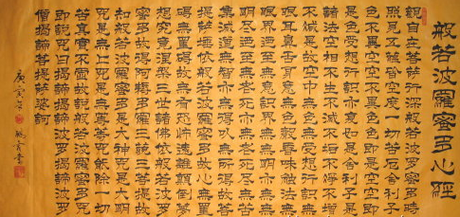 般若波羅蜜多心經
觀自在菩薩行深般若波羅蜜多時
照見五蘊皆空度一切苦厄舍利子
色不異空空不異色色即是空空即
是色受想行識亦復如是舍利子是
諸法空相不生不滅不垢不淨不增
不減是故空中無色無受想行識無
眼耳鼻舌身意無色聲香味觸法無
眼界乃至無意識界無無明亦無無
明盡乃至無老死亦無老死盡無苦
集滅道無智亦無得以無所得故菩
提薩埵依般若波羅蜜多故心無罣
礙無罣礙故無有恐怖遠離顛倒夢
想究竟涅槃三世諸佛依般若波羅
蜜多故得阿耨多羅三藐三菩提故
知般若波羅蜜多是大神咒是大明
咒是無上咒是無等等咒能除一切
苦真實不虛故說般若波羅蜜多咒
即說咒曰揭諦揭諦波羅揭諦波羅
僧揭諦菩提薩婆訶
庚寅 書